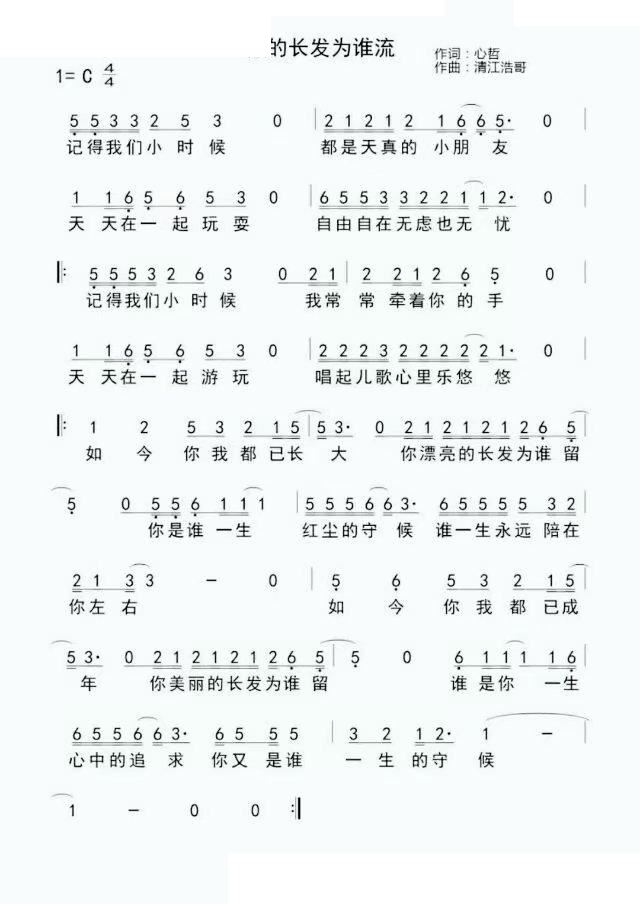 的长发为谁流
作词：心哲
作曲：清江浩哥
1= C 4/4
5 5 3 3 2 5 3 0 | 2 1 2 1 2 1 6 6 5· 0 |
记得我们小时候 都是天真的小朋友
1 1 6 5 6 5 3 0 | 6 5 5 3 3 2 2 1 1 2· 0 |
天天在一起玩耍 自由自在无虑也无忧
‖: 5 5 5 3 2 6 3 0 2 1 | 2 2 2 1 2 6 5 0 |
记得我们小时候 我常常牵着你的手
1 1 6 5 6 5 3 0 | 2 2 2 3 2 2 2 2 2 1· 0 |
天天在一起游玩 唱起儿歌心里乐悠悠
‖: 1 2 5 3 2 1 5 | 5 3· 0 2 1 2 1 2 1 2 6 5 |
如今你我都已长大 你漂亮的长发为谁留
5 0 5 5 6 1 1 1 | 5 5 5 6 6 3· 6 5 5 5 5 3 2 |
你是谁一生 红尘的守候 谁一生永远陪在
2 1 3 3 – 0 | 5 6 5 3 2 1 5 |
你左右 如今你我都已成
5 3· 0 2 1 2 1 2 1 2 6 5 | 5 0 6 1 1 1 1 6 |
年 你美丽的长发为谁留 谁是你一生
6 5 5 6 6 3· 6 5 6 5 5· | 3 2 1 2· 1 – |
心中的追求 你又是谁 一生的守候
1 – 0 0 :‖